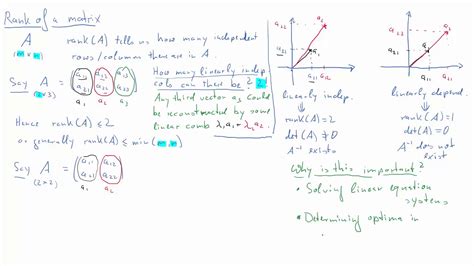 Rank of a matrix
A
m × n
rank(A) tells us how many independent
rows/columns there are in A.
Say A =
(2×3)
a₁₁ a₁₂ a₁₃
a₂₁ a₂₂ a₂₃
a₁ a₂ a₃
How many linearly indep.
cols can there be? 2
Any third vector a₃ could
be reconstructed by some
linear comb λ₁a₁ + λ₂a₂.
Hence rank(A) ≤ 2
or generally rank(A) ≤ min(m,n)
Say A =
(2×2)
a₁₁ a₁₂
a₂₁ a₂₂
a₁ a₂
a₂₂
a₂₁
a₂
a₁
a₁₁ a₁₂
linearly indep.
⇓
rank(A) = 2
det(A) ≠ 0
A⁻¹ exists
a₂₂
a₂₁
a₂
a₁
a₁₁ a₁₂
linearly depend.
⇓
rank(A) = 1
det(A) = 0
A⁻¹ does not
exist
Why is this important?
• Solving linear equation
systems
• Determining optima in